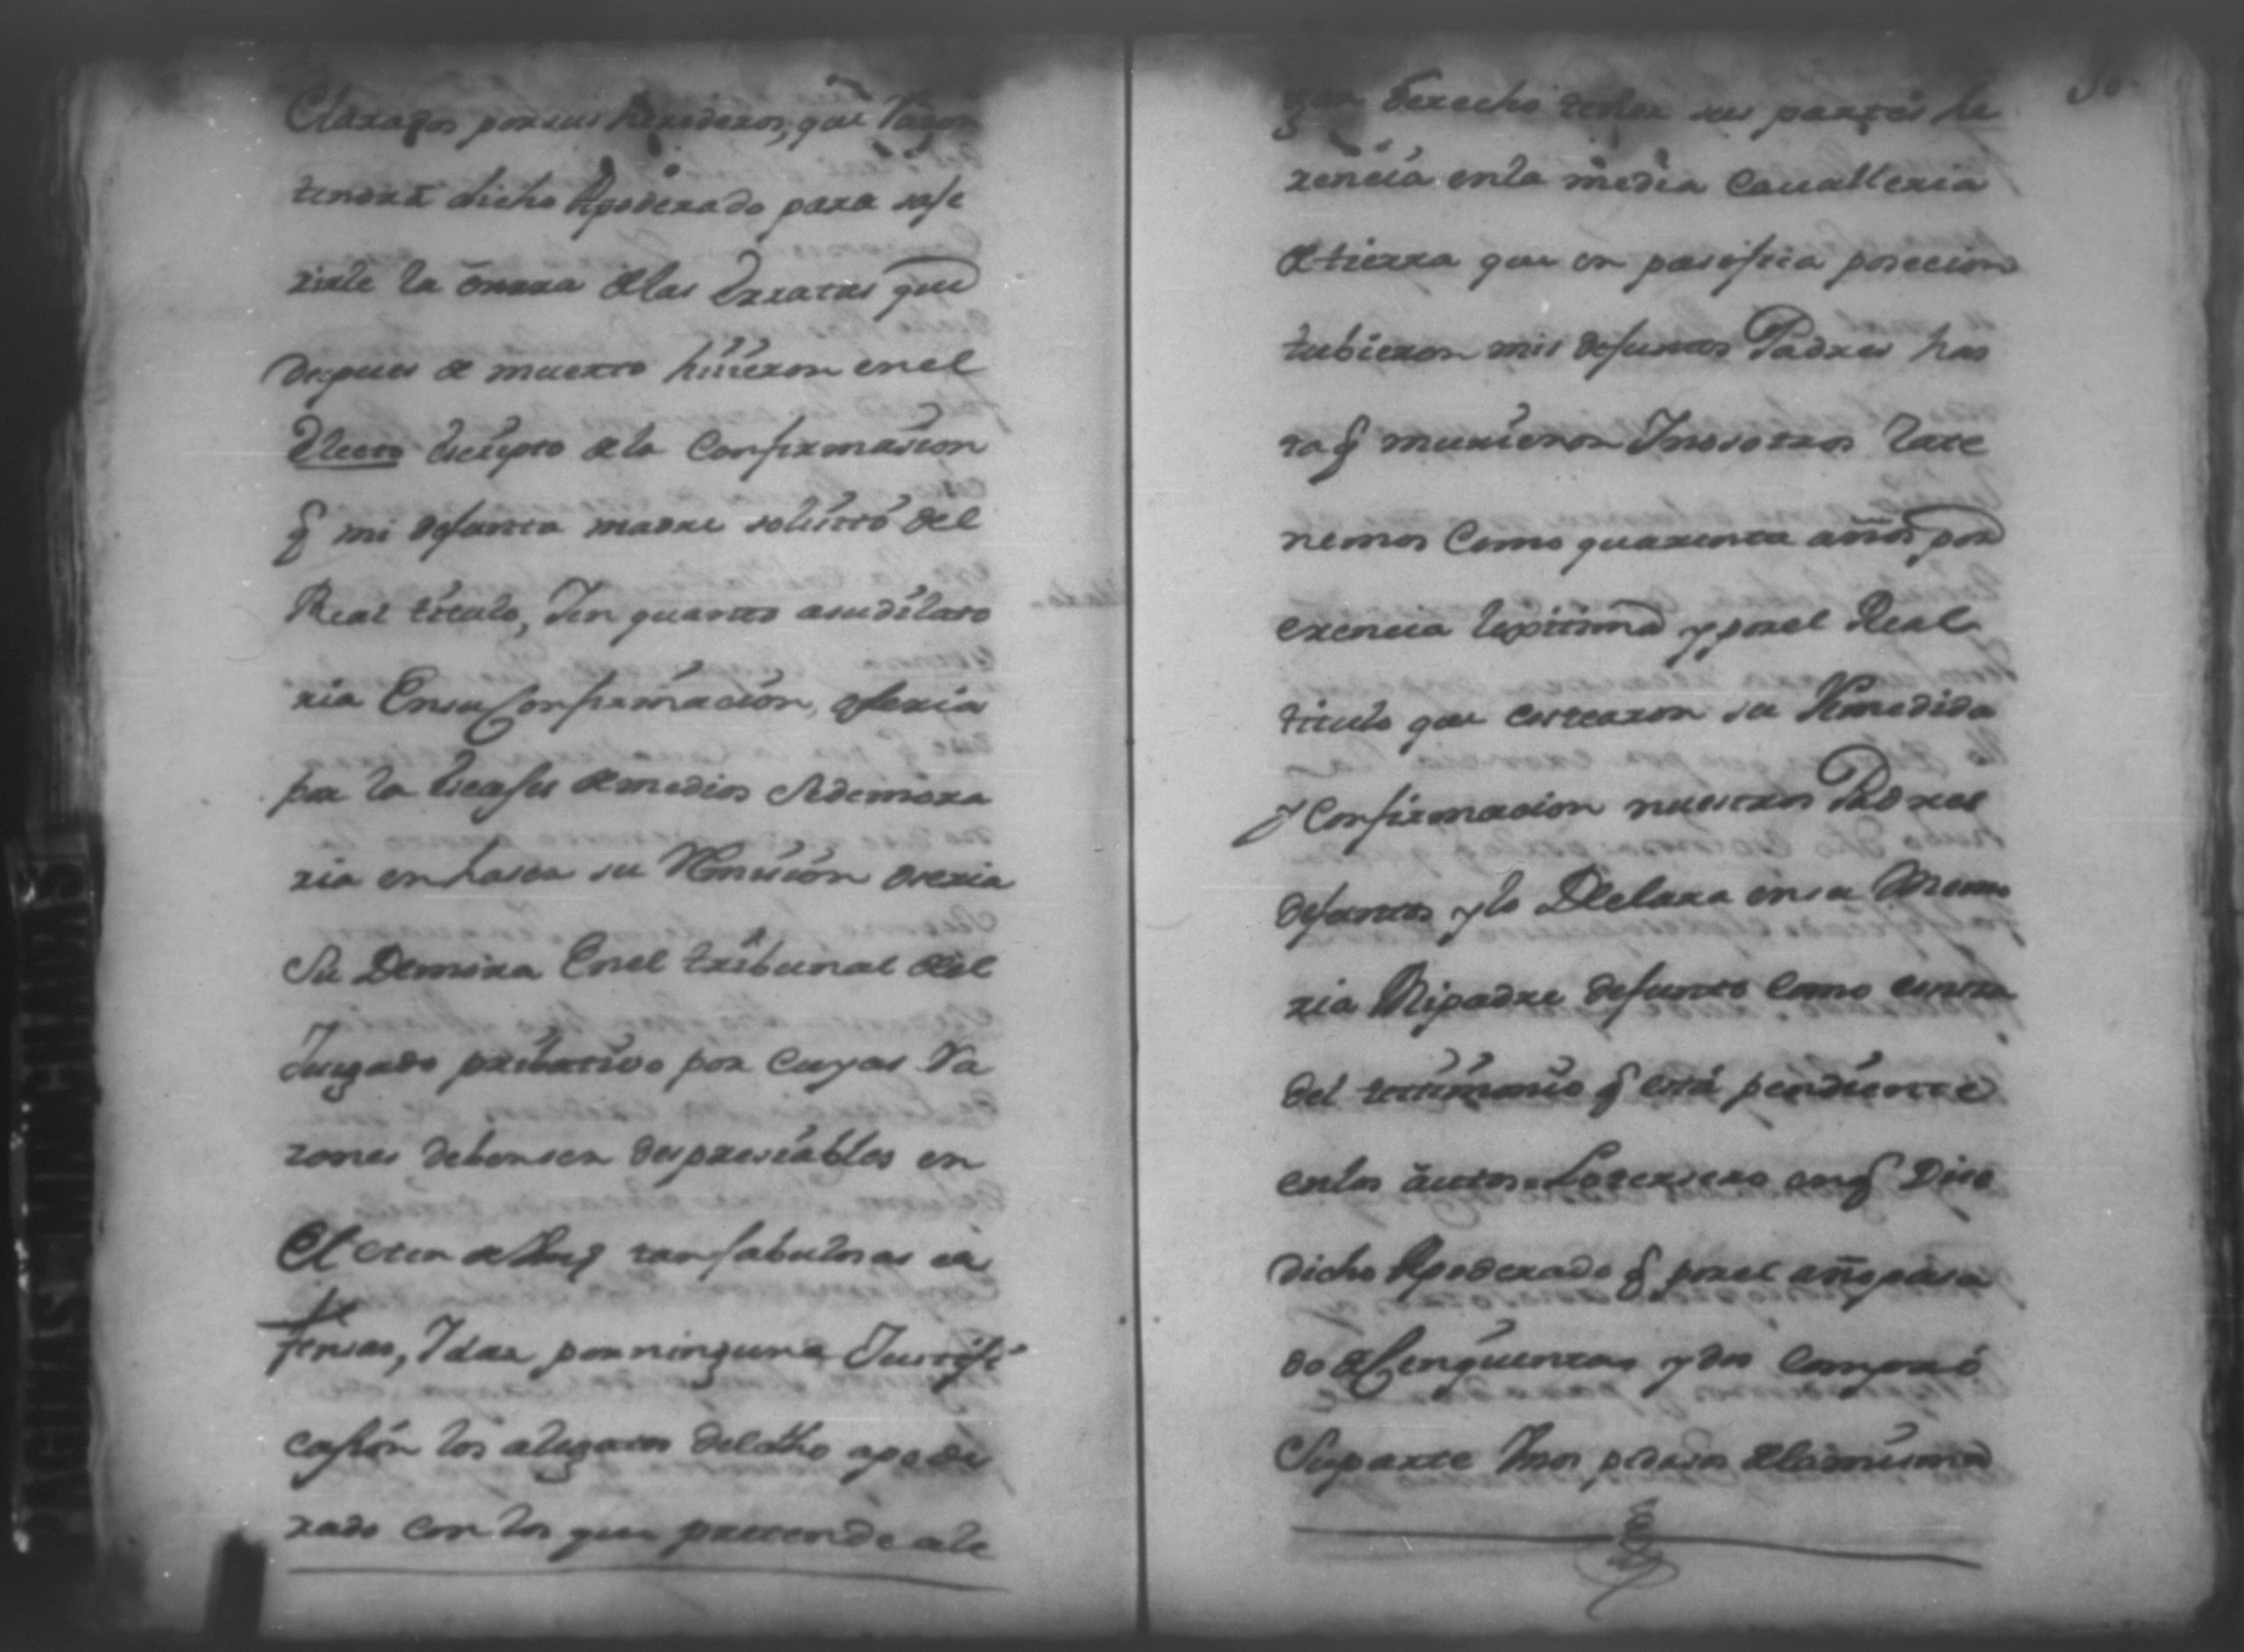 Claraḡos por sus herederos, que Razon
tendrá dicho Apoderado para safe
rirle la onrra de las erratas que
despues de muerto hiuieron en el
efecto de la Confirmasion
q mi defunta madre solicitó del
Real titulo, Y en quanto
ria En su Confirmacion, y seria
por la de medios demora
ria en hasea su Remicion seria
Su Demora En el tribunal del
Jusgado pribatiuo por cuyas Ra
zones deben ser despresiables en
El tan fabulosas
fensas, Y dar por ninguna Justifi
casion los alegatos del dho apode
rado con los que pretende ale
50
gar derecho tener sus partes he
rencia en la media Cauallería
de tierra que en pasifica posecion
tubieron mis defuntos Padres has
ta q murieron Y nosotros la te
nemos Como quarenta años por
erencia lexitima y por el Real
titulo que costearon su Remedida
y Confirmacion nuestros Padres
defuntos y lo Declara en su Memo
ria Mi padre defunto Como consta
del testimonio q está pendiente
en los autos. Lo tersero en q Dise
dicho Apoderado q por el año pasa
do de Cinquenta y dos Compró
Su parte Unos pedasos de la misma